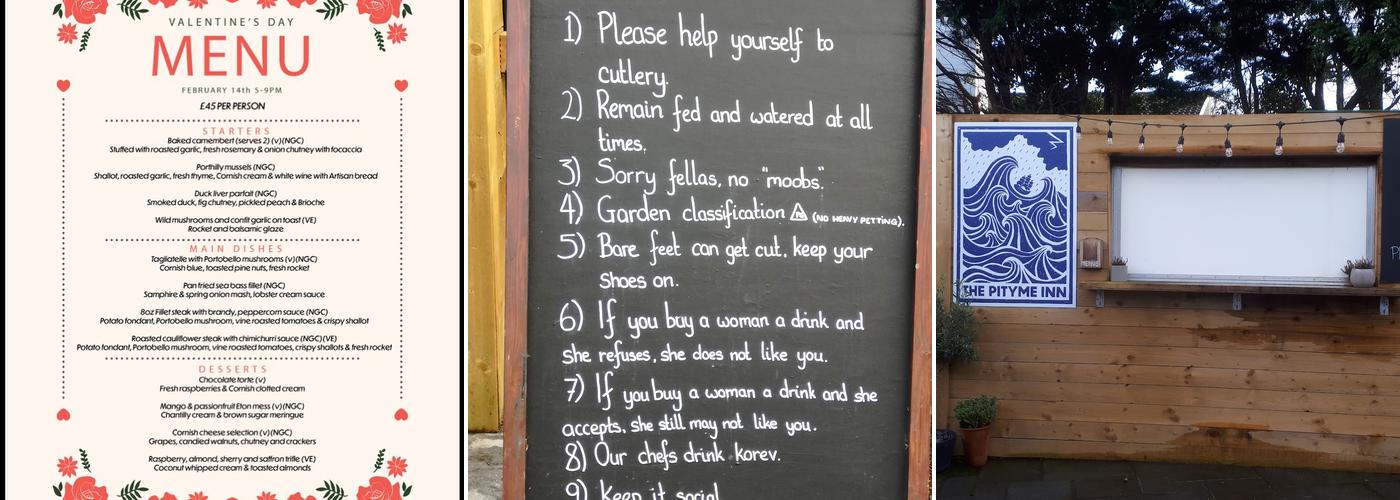 VALENTINE'S DAY
MENU
FEBRUARY 14th 5-9PM
£45 PER PERSON
STARTERS
Baked camembert (serves 2) (v)(NGC)
Stuffed with roasted garlic, fresh rosemary & onion chutney with focaccia
Porthilly mussels (NGC)
Shallot, roasted garlic, fresh thyme, Cornish cream & white wine with Artisan bread
Duck liver parfait (NGC)
Smoked duck, fig chutney, pickled peach & Brioche
Wild mushrooms and confit garlic on toast (VE)
Rocket and balsamic glaze
MAIN DISHES
Tagliatelle with Portobello mushrooms (v)(NGC)
Cornish blue, toasted pine nuts, fresh rocket
Pan fried sea bass fillet (NGC)
Samphire & spring onion mash, lobster cream sauce
8oz Fillet steak with brandy, peppercorn sauce (NGC)
Potato fondant, Portobello mushroom, vine roasted tomatoes & crispy shallot
Roasted cauliflower steak with chimichurri sauce (NGC)(VE)
Potato fondant, Portobello mushroom, vine roasted tomatoes, crispy shallots & fresh rocket
DESSERTS
Chocolate torte (v)
Fresh raspberries & Cornish clotted cream
Mango & passionfruit Eton mess (v)(NGC)
Chantilly cream & brown sugar meringue
Cornish cheese selection (v)(NGC)
Grapes, candied walnuts, chutney and crackers
Raspberry, almond, sherry and saffron trifle (VE)
Coconut whipped cream & toasted almonds
1) Please help yourself to
cutlery.
2) Remain fed and watered at all
times.
3) Sorry fellas, no "moobs".
4) Garden classification (NO HEAVY PETTING).
5) Bare feet can get cut, keep your
shoes on.
6) If you buy a woman a drink and
she refuses, she does not like you.
7) If you buy a woman a drink and she
accepts, she still may not like you.
8) Our chefs drink korev.
9) Keep it social
THE PITYME INN
MENUS